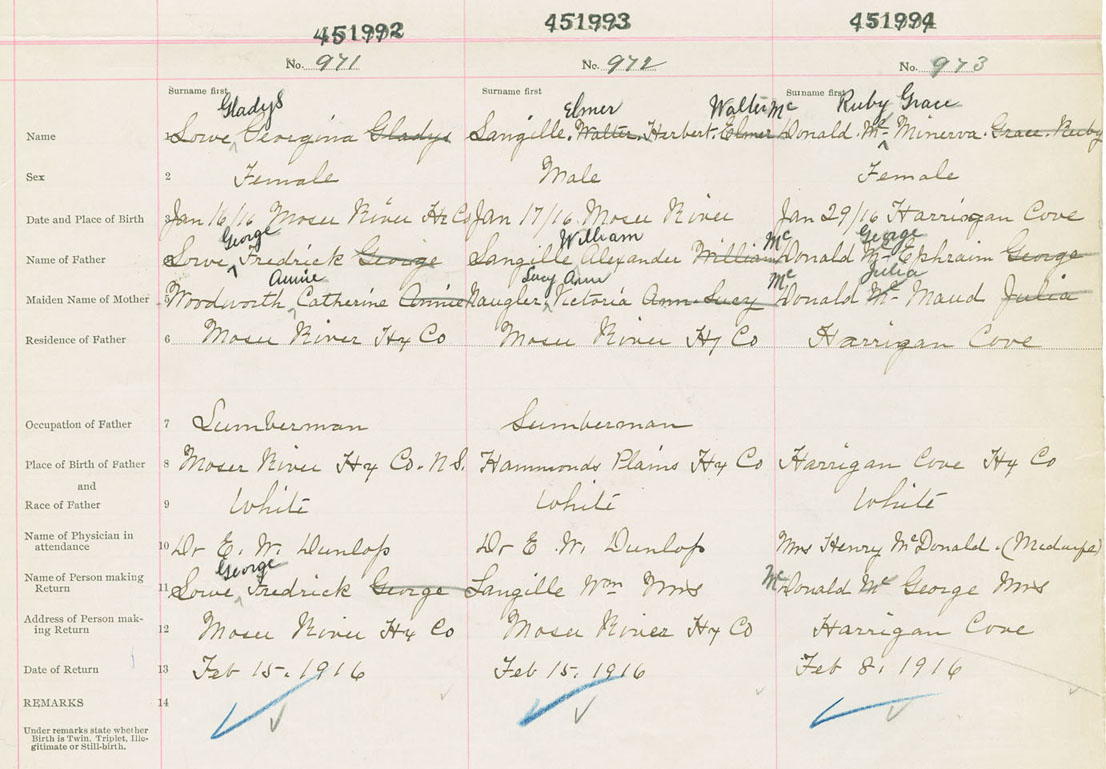 451992 451993 451994
No. 971 No. 972 No. 973
Surname first Surname first Surname first
Gladys Elmer Walter Mc Ruby Grace
Name 1 Lowe, Georgina Gladys Langille, Walter Herbert. Elmer Donald Mc Minerva. Grace. Ruby
Sex 2 Female Male Female
Date and Place of Birth 3 Jan 16/16 Moser River Hx Co Jan 17/16. Moser River Jan 29/16 Harrigan Cove
George William Mc George
Name of Father Lowe, Fredrick George Langille Alexander William Donald Mc Ephraim George
Annie Lucy Ann Mc Julia
Maiden Name of Mother Woodworth, Catherine Annie Naugler, Victoria Ann Lucy Donald Mc Maud Julia
Residence of Father 6 Moser River Hx Co Moser River Hx Co Harrigan Cove
Occupation of Father 7 Lumberman Lumberman
Place of Birth of Father 8 Moser River Hx Co. N.S. Hammonds Plains Hx Co Harrigan Cove Hx Co
and
Race of Father 9 White White White
Name of Physician in
attendance 10 Dr E. W. Dunlop Dr E. W. Dunlop Mrs Henry McDonald. (Midwife)
George
Name of Person making
Return 11 Lowe, Fredrick George Langille Wm Mrs Mc Donald Mc George Mrs
Address of Person mak-
ing Return 12 Moser River Hx Co Moser River Hx Co Harrigan Cove
Date of Return 13 Feb 15. 1916 Feb 15. 1916 Feb 8. 1916
REMARKS 14
Under remarks state whether
Birth is Twin, Triplet, Ille-
gitimate or Still-birth.